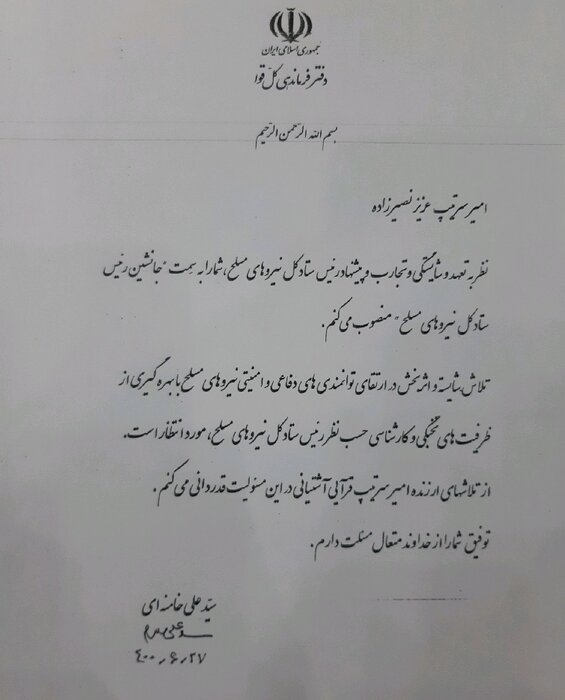 جمهوری اسلامی ایران
دفتر فرماندهی کل قوا
بسم الله الرحمن الرحیم
امیر سرتیپ عزیز نصیرزاده
نظر به تعهد و شایستگی و تجارب و پیشنهاد رئیس ستاد کل نیروهای مسلح، شما را به سمت «جانشین رئیس
ستاد کل نیروهای مسلح» منصوب می‌کنم.
تلاش شایسته و اثربخش در ارتقای توانمندی‌های دفاعی و امنیتی نیروهای مسلح با بهره‌گیری از
ظرفیت‌های نخبگی و کارشناسی حسب نظر رئیس ستاد کل نیروهای مسلح، مورد انتظار است.
از تلاشهای ارزنده امیر سرتیپ قرآئی آشتیانی در این مسئولیت قدردانی می‌کنم.
توفیق شما را از خداوند متعال مسئلت دارم.
سیّد علی خامنه‌ای
۴۰۰٫۶٫۲۷